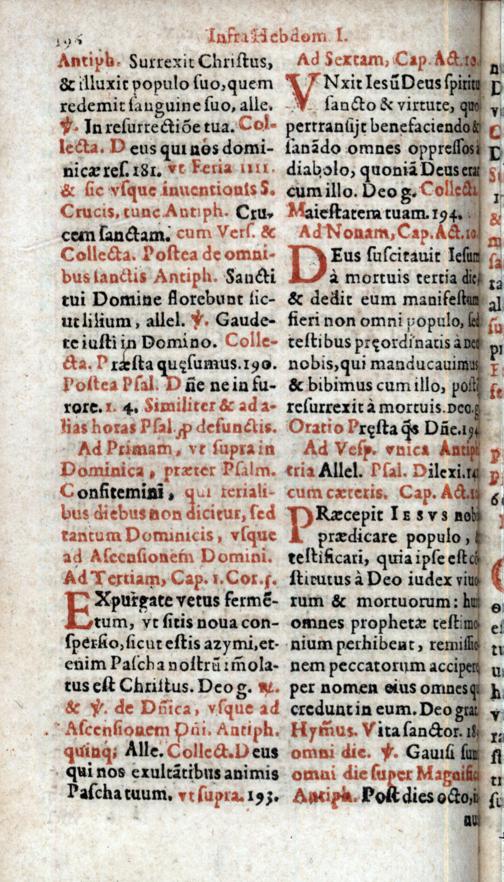 196
Infra Hebdom I.
Antiph. Surrexit Christus,
& illuxit populo suo, quem
redemit sanguine suo, alle.
℣. In resurrectiōe tua. Col-
lecta. Deus qui nos domi-
nicæ res. 181. vt Feria IIII.
& sic vsque inuentionis S.
Crucis, tunc Antiph. Cru-
cem sanctam. cum Vers. &
Collecta. Postea de omni-
bus sanctis Antiph. Sancti
tui Domine florebunt sic-
ut lilium, allel. ℣. Gaude-
te iusti in Domino. Colle-
cta. Præsta quęsumus. 190.
Postea Psal. Dñe ne in fu-
rore. 1. 4. Similiter & ad a-
lias horas Psal. ꝓ defunctis.
Ad Primam, vt supra in
Dominica, præter Psalm.
Confitemini, qui feriali-
bus diebus non dicitur, sed
tantum Dominicis, vsque
ad Ascensionem Domini.
Ad Tertiam, Cap. 1. Cor. 5.
EXpurgate vetus fermē-
tum, vt sitis noua con-
spersio, sicut estis azymi, et-
enim Pascha nostrū im̄ola-
tus est Christus. Deo g. ℟.
& ℣. de Dñica, vsque ad
Ascensionem Dñi. Antiph.
quinq; Alle. Collect. Deus
qui nos exultātibus animis
Pascha tuum. vt supra. 193.
Ad Sextam, Cap. Act. 10.
VNxit Iesū Deus spiritu
sancto & virtute,
pertransijt benefaciendo &
sanādo omnes oppressos à
diabolo, quoniā Deus erat
cum illo. Deo g. Collecta
Maiestatem tuam. 194.
Ad Nonam, Cap. Act. 10.
DEus suscitauit Iesum
à mortuis tertia die,
& dedit eum manifestum
fieri non omni populo, sed
testibus pręordinatis à Deo
nobis, qui manducauimus
& bibimus cum illo,
resurrexit à mortuis. Deo. g.
Oratio Pręsta q̄s Dñe. 194
Ad Vesp. vnica Antiph
tria Allel. Psal. Dilexi. 14
cum cæteris. Cap. Act.
PRæcepit IESVS nobis
prædicare populo, &
testificari, quia ipse est cō-
stitutus à Deo iudex viuo
rum & mortuorum: huic
omnes prophetæ testimo
nium perhibent, remissio
nem peccatorum accipere
per nomen eius omnes qui
credunt in eum. Deo grat
Hym̄us. Vita sanctor. 18
omni die. ℣. Gauisi sunt
omni die super Magnific
Antiph. Post dies octo,